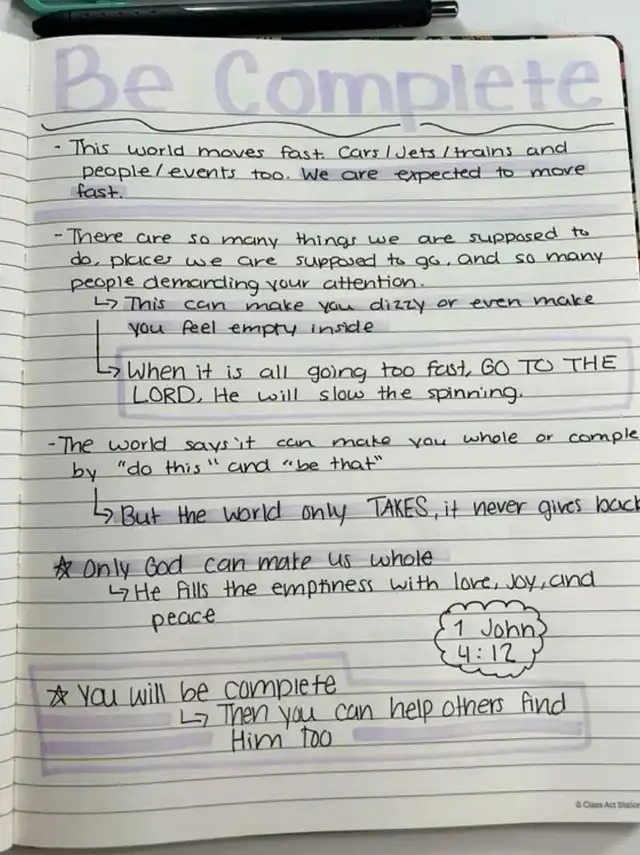 Be Complete
- This world moves fast. Cars/Jets/trains and
people/events too. We are expected to move
fast.
- There are so many things we are supposed to
do, places we are supposed to go, and so many
people demanding your attention.
↳ This can make you dizzy or even make
you feel empty inside
↳ When it is all going too fast, GO TO THE
LORD. He will slow the spinning.
- The world says it can make you whole or comple
by "do this" and "be that"
↳ But the world only TAKES, it never gives back
☆ Only God can make us whole
↳ He fills the emptiness with love, joy, and
peace
1 John
4:12
☆ You will be complete
↳ Then you can help others find
Him too
© Class Act Statio